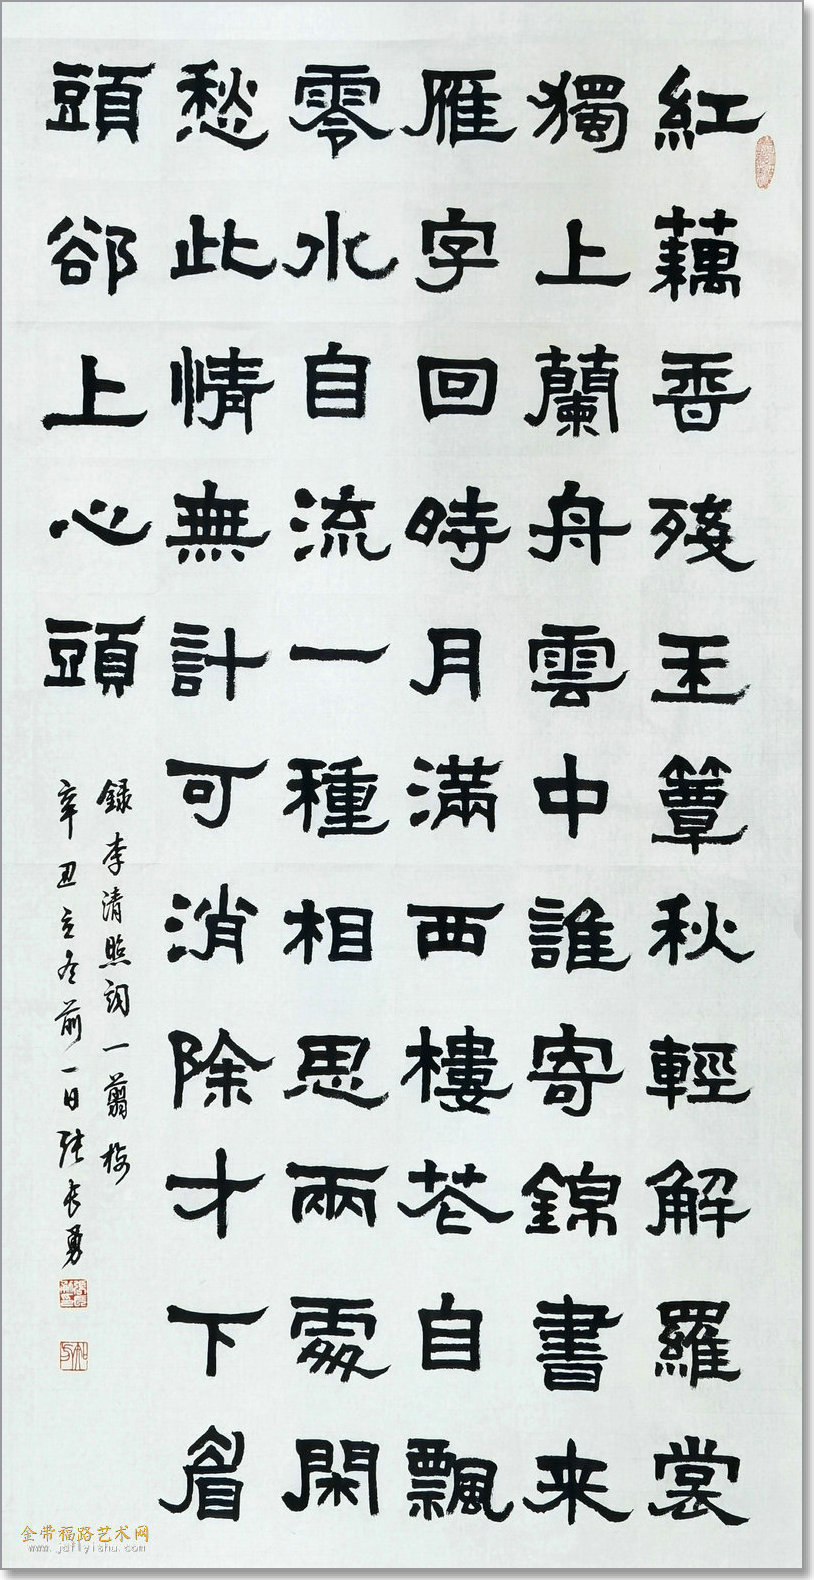 紅藕香殘玉簟秋輕解羅裳
獨上蘭舟雲中誰寄錦書来
雁字回時月滿西樓花自飄
零水自流一種相思兩處閑
愁此情無計可消除才下眉
頭卻上心頭
録李清照詞一剪梅
辛丑立冬前一日張长勇
金带福路艺术网
www.jdflyishu.com